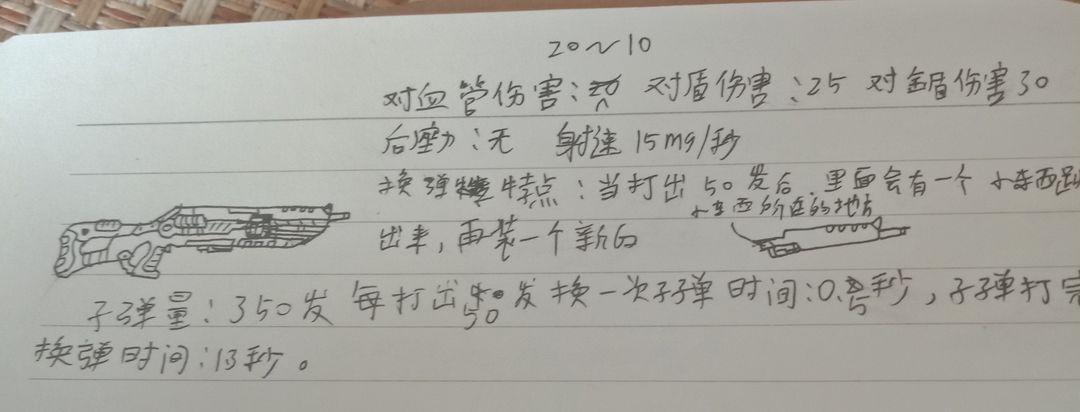 20~10
对血管伤害: 对盾伤害:25 对金盾伤害30
后座力:无 射速15mg/秒
换弹特点:当打出50发后,里面会有一个小东西
小东西所在的地方
出来,再装一个新的
子弹量:350发 每打出50发换一次子弹时间:0.5秒,子弹打完
换弹时间:13秒。